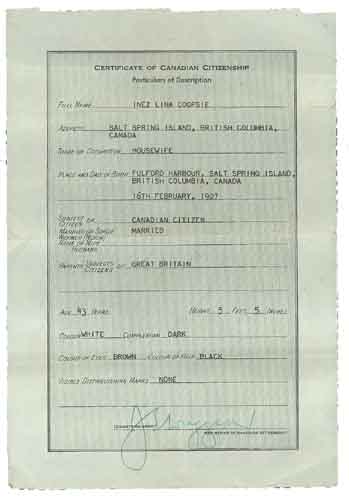 CERTIFICATE OF CANADIAN CITIZENSHIP
Particulars of Description
FULL NAME INEZ LINA COOPSIE
ADDRESS SALT SPRING ISLAND, BRITISH COLUMBIA,
CANADA
TRADE OR OCCUPATION HOUSEWIFE
PLACE AND DATE OF BIRTH FULFORD HARBOUR, SALT SPRING ISLAND,
BRITISH COLUMBIA, CANADA
16TH FEBRUARY, 1907
SUBJECT OR CITIZEN CANADIAN CITIZEN
MARRIED OR SINGLE MARRIED
HUSBAND
PARENTS SUBJECTS CITIZENS OF GREAT BRITAIN
AGE 43 YEARS HEIGHT 5 FEET 5 INCHES
COLOUR WHITE COMPLEXION DARK
COLOUR OF EYES BROWN COLOUR OF HAIR BLACK
VISIBLE DISTINGUISHING MARKS NONE